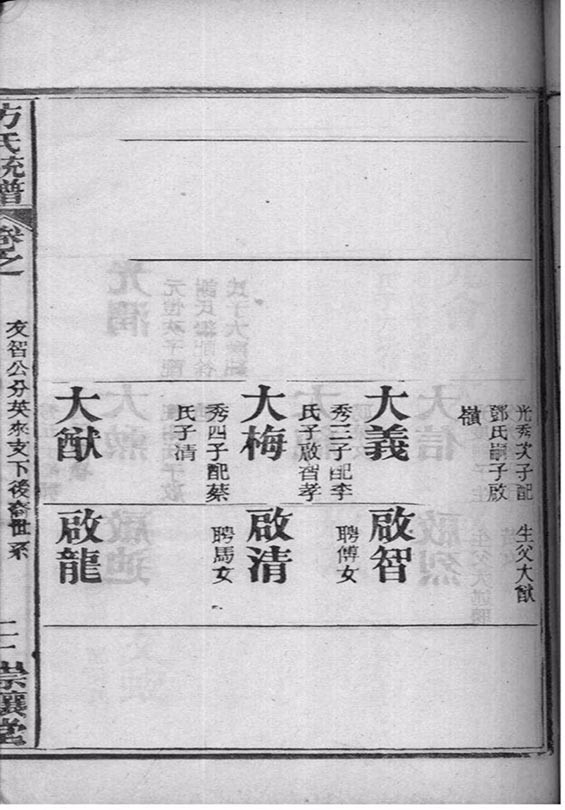 光秀次子配
鄧氏嗣子啟
嶺
大義
秀三子配李
氏子啟智孝
大梅
秀四子配蔡
氏子清
大猷
生父大猷
啟智
聘傅女
啟清
聘馬女
啟龍
方氏統譜
卷之
友智公分英來支下後裔世系
崇讓堂